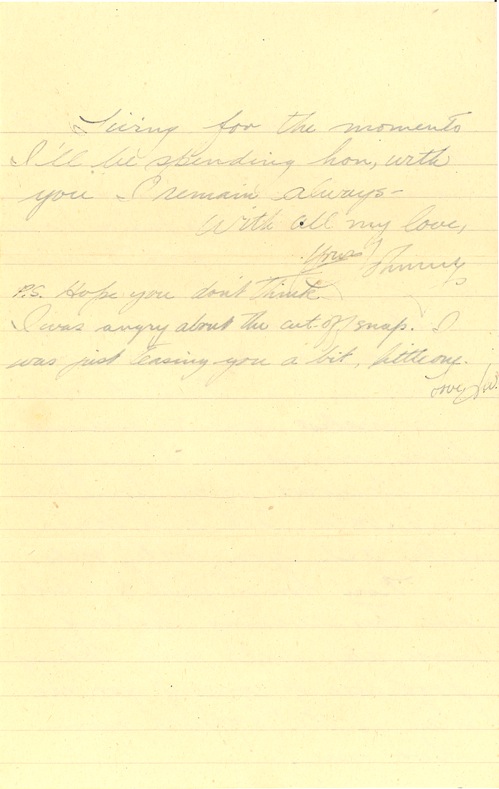 Living for the moments
I'll be spending hon, with
you I remain always-
With all my love,
Yours
P.S. Hope you don't think
I was angry about the cut-off snap. I
was just teasing you a bit, little one.
Love, J.W.